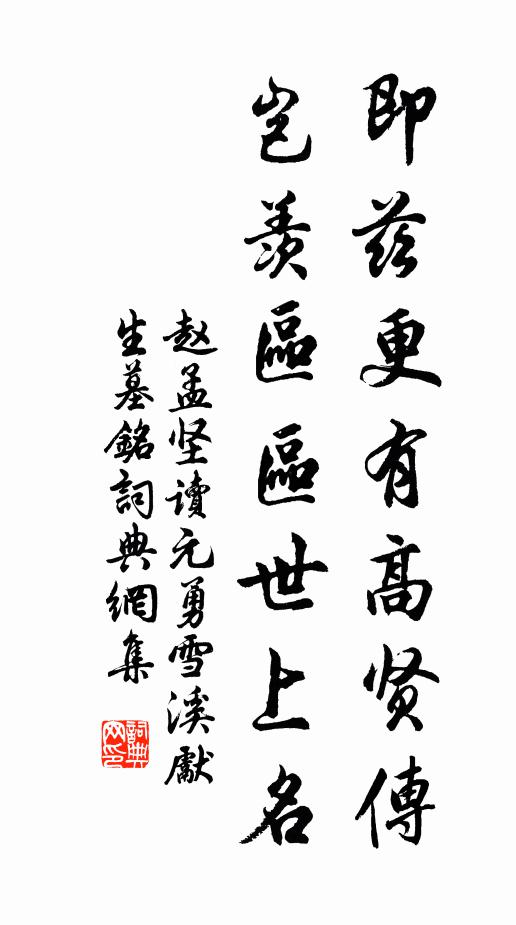 即兹更有高贤傳
岂羨區區世上名
赵孟坚读元勇雪溪獻
生墓銘詞典網集
詞典
网印